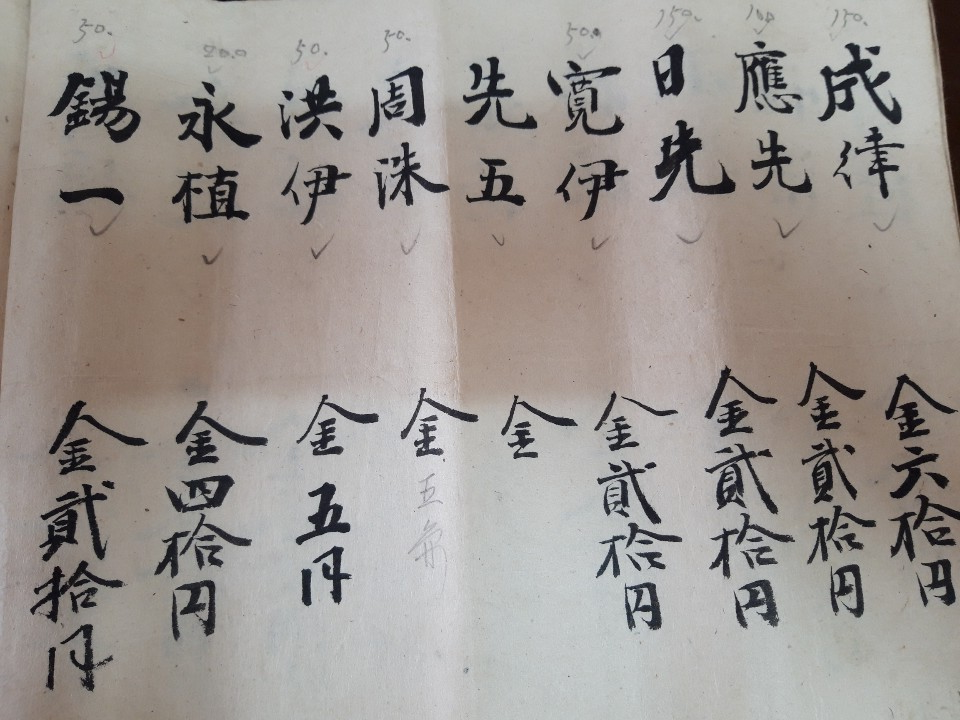 150.
成律
金六拾円
100
應先
金貳拾円
150.
日先
金貳拾円
50.0
寬伊
金貳拾円
先五
金
50.
周洙
金
五
50.
洪伊
金五円
20.0
永植
金四拾円
50.
錫一
金貳拾円